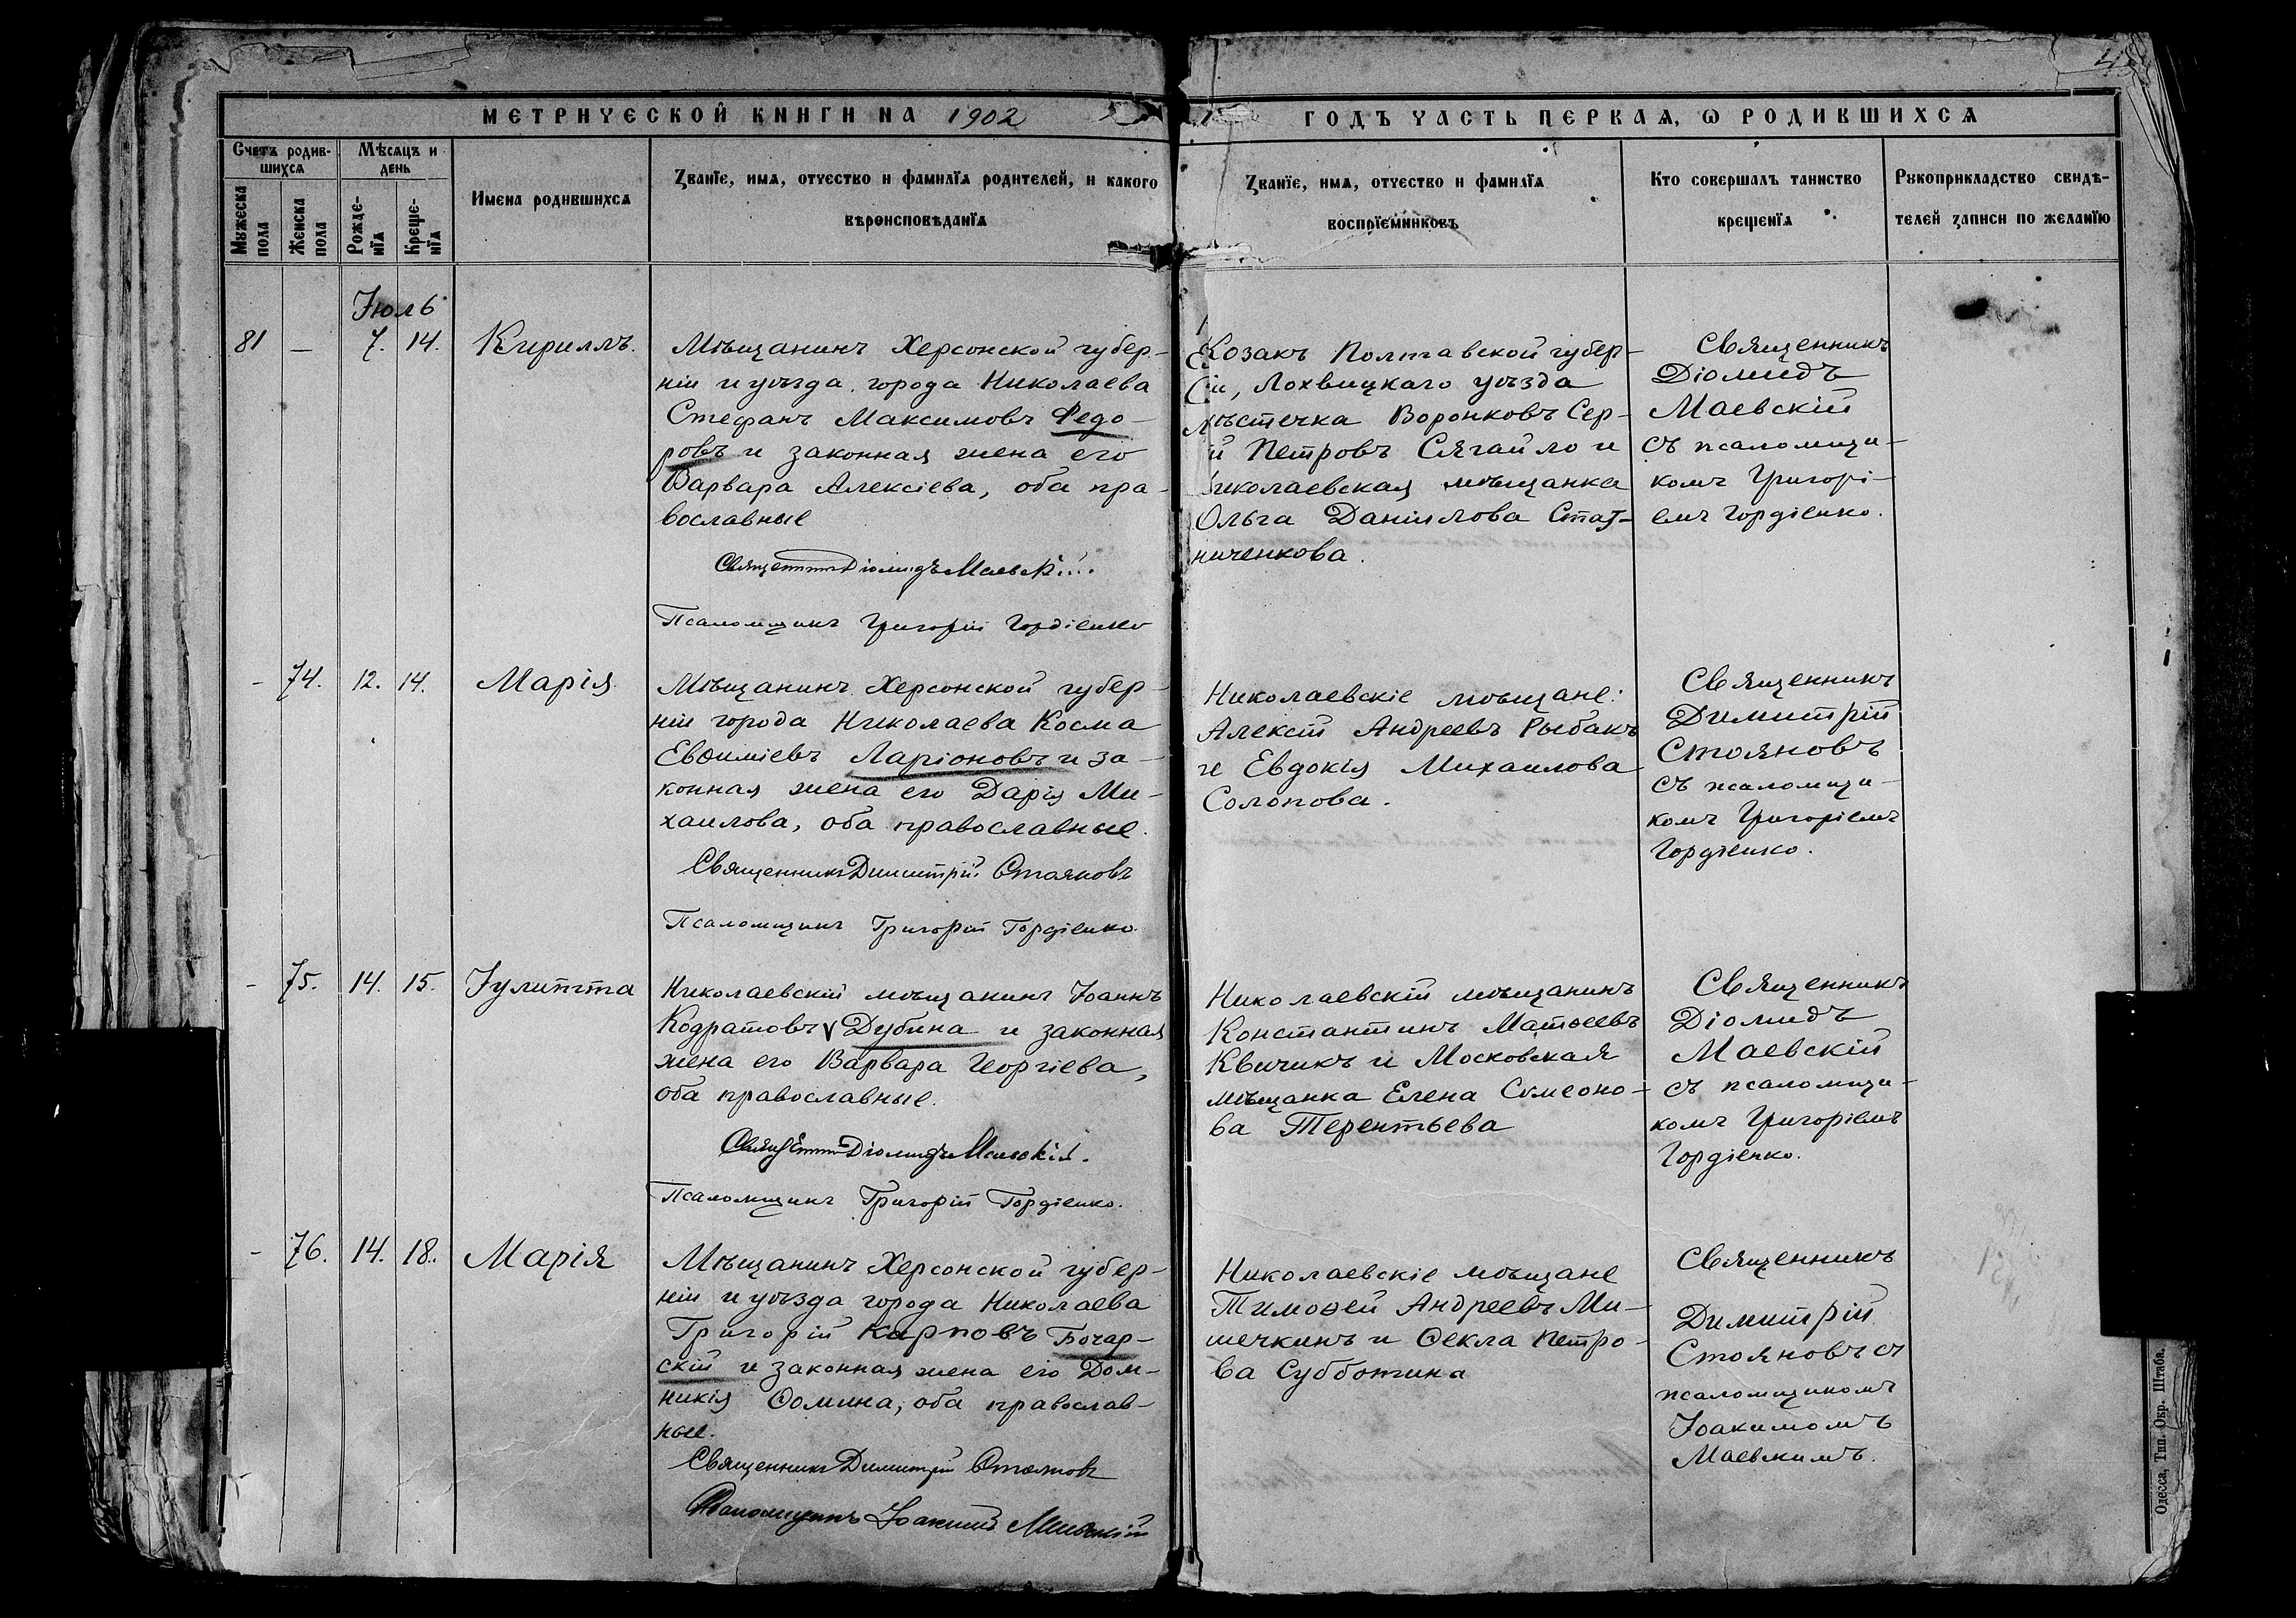 МЕТРИЧЕСКОЙ КНИГИ НА 1902
ГОДЪ ЧАСТЬ ПЕРВАЯ, Ѡ РОДИВШИХСЯ
Счетъ родив-
шихся
Мѣсяцъ и
день
Мужеска
пола
Женска
пола
Рожде-
нїя
Креще-
нїя
Имена родившихся
Званїе, имя, отчество и фамилїя родителей, и какого
вѣроисповѣданїя
Званїе, имя, отчество и фамилїя
воспрїемниковъ
Кто совершалъ таинство
крещенїя
Рукоприкладство свидѣ-
телей записи по желанїю
Іюль
81 — 7. 14. Кириллъ.
Мѣщанинъ Херсонской губер-
ніи и уѣзда города Николаева
Стефанъ Максимовъ Федо-
ровъ и законная жена его
Варвара Алексіева, оба пра-
вославные
Священникъ Діомидъ Маевскій
Псаломщикъ Григорій Гордіенко
Козакъ Полтавской губер-
ніи, Лохвицкаго уѣзда
мѣстечка Воронковъ Сер-
й Петровъ Сягайло и
Николаевская мѣщанка
Ольга Даніилова
ниченкова.
Священникъ
Діомидъ
Маевскій
съ псаломщи-
комъ Григорі-
емъ Гордіенко.
- 74. 12. 14. Марія
Мѣщанинъ Херсонской губер-
ніи города Николаева Косма
Евѳиміевъ Ларіоновъ и за-
конная жена его Дарія Ми-
хаилова, оба православные.
Священникъ Димитрій Стояновъ
Псаломщикъ Григорій Гордіенко
Николаевскіе мѣщане:
Алексій Андреевъ Рыбакъ
и Евдокія Михаилова
Солопова.
Священникъ
Димитрій
Стояновъ
съ псаломщи-
комъ Григоріемъ
Гордіенко.
- 75. 14. 15. Іулитта
Николаевскій мѣщанинъ Іоаннъ
Кодратовъ Дубина и законная
жена его Варвара Георгіева,
оба православные.
Священникъ Діомидъ Маевскій.
Псаломщикъ Григорій Гордіенко.
Николаевскій мѣщанинъ
Константинъ Матѳеевъ
Квичикъ и Московская
мѣщанка Елена Симеоно-
ва Терентьева
Священникъ
Діомидъ
Маевскій
съ псаломщи-
комъ Григоріемъ
Гордіенко.
- 76. 14. 18. Марія
Мѣщанинъ Херсонской губер-
ніи и уѣзда города Николаева
Григорій Карповъ Бочар-
скій и законная жена его Дом-
никія Ѳомина, оба православ-
ные.
Священникъ Димитрій Стояновъ
Псаломщикъ Іоакимъ Маевскій
Николаевскіе мѣщане
Тимоѳей Андреевъ Ми-
шечкинъ и Ѳекла Петро-
ва Субботина
Священникъ
Димитрій
Стояновъ съ
псаломщикомъ
Іоакимомъ
Маевскимъ.
Одесса, Тип. Окр. Штаба.